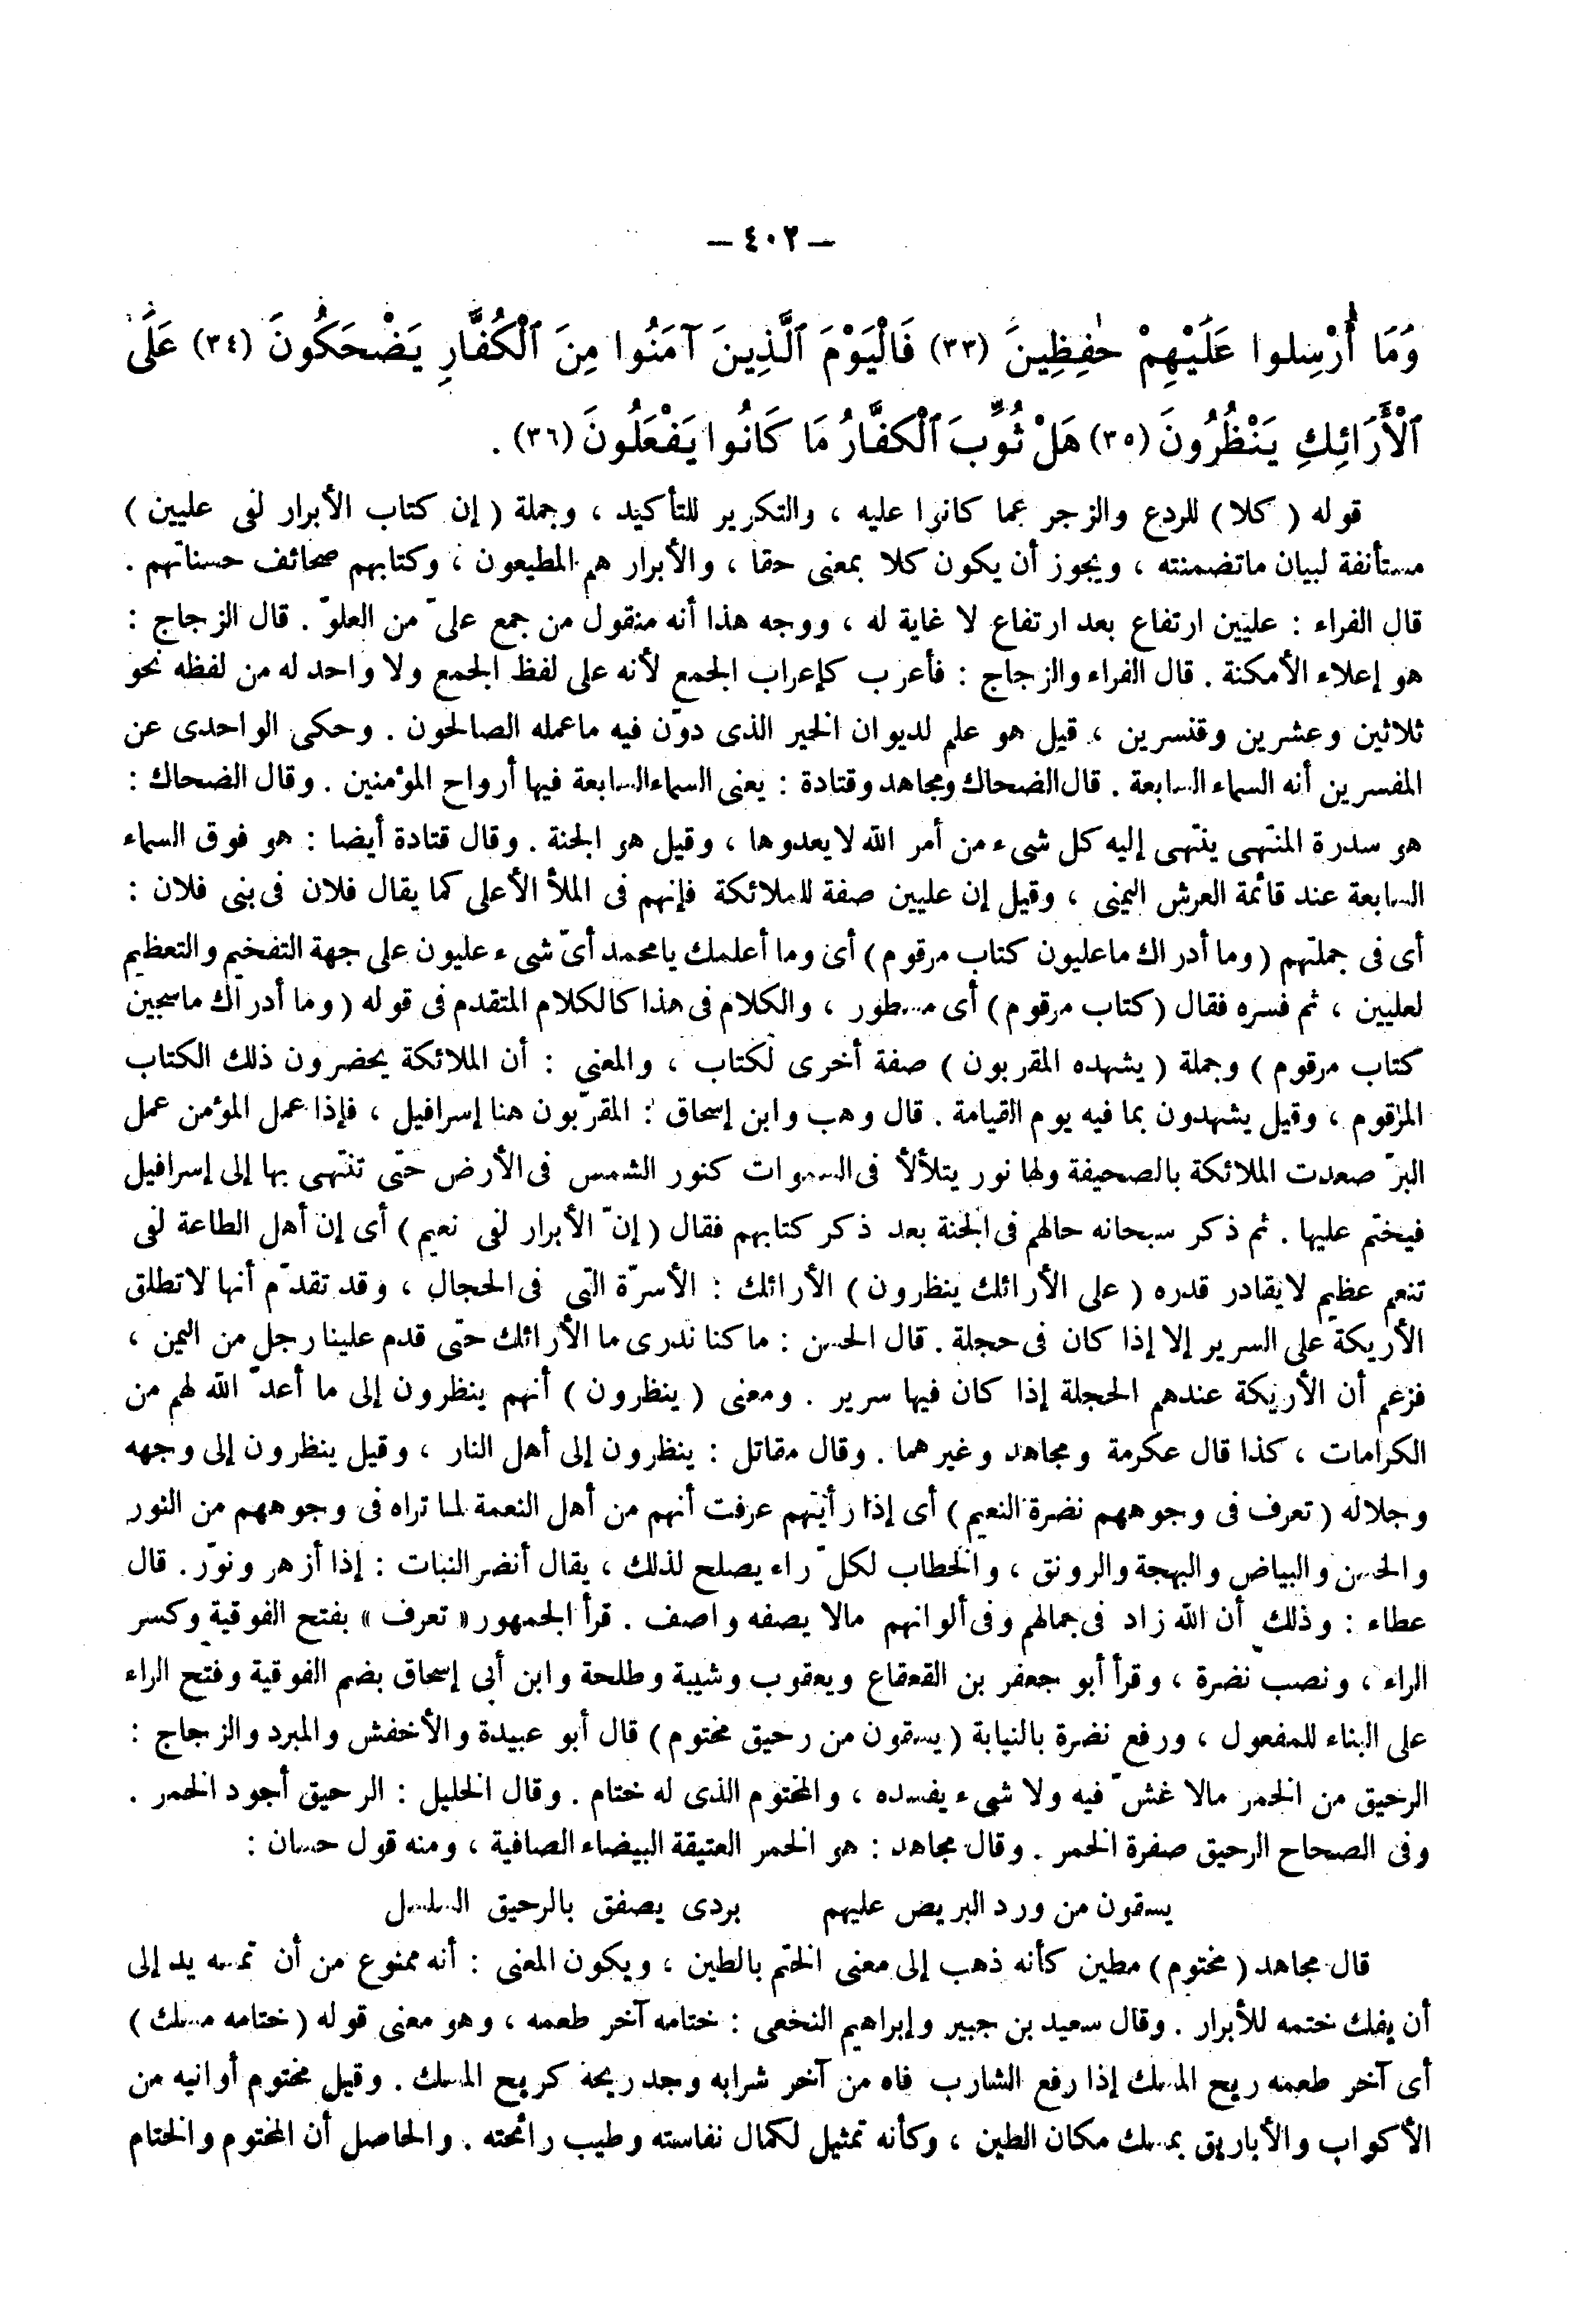 — ٤٠٢ —
وَمَا أُرْسِلوا عَلَيْهِمْ حٰفِظِينَ (٣٣) فَالْيَوْمَ ٱلَّذِينَ آمَنُوا مِنَ ٱلْكُفَّارِ يَضْحَكُونَ (٣٤) عَلَى
ٱلْأَرَائِكِ يَنْظُرُونَ (٣٥) هَلْ ثُوِّبَ ٱلْكفَّارُ مَا كَانُوا يَفْعَلُونَ (٣٦) .
قوله ( كلا ) للردع والزجر عما كانوا عليه ، والتكرير للتأكيد ، وجملة ( إن كتاب الأبرار لفى عليين )
مستأنفة لبيان ماتضمنته ، ويجوز أن يكون كلا بمعنى حقا ، والأبرار هم المطيعون ، وكتابهم صحائف حسناتهم .
قال الفراء : عليين ارتفاع بعد ارتفاع لا غاية له ، ووجه هذا أنه منقول من جمع علىّ من العلوّ . قال الزجاج :
هو إعلاء الأمكنة . قال الفراء والزجاج : فأعرب كإعراب الجمع لأنه على لفظ الجمع ولا واحد له من لفظه نحو
ثلاثين وعشرين وقنسرين ، قيل هو علم لديوان الخير الذى دوّن فيه ماعمله الصالحون . وحكى الواحدى عن
المفسرين أنه السماء السابعة . قال الضحاك ومجاهد وقتادة : يعنى السماء السابعة فيها أرواح المؤمنين . وقال الضحاك :
هو سدرة المنتهى ينتهى إليه كل شىء من أمر الله لايعدوها ، وقيل هو الجنة . وقال قتادة أيضا : هو فوق السماء
السابعة عند قائمة العرش اليمنى ، وقيل إن عليين صفة للملائكة فإنهم فى الملأ الأعلى كما يقال فلان فى بنى فلان :
أى فى جملتهم ( وما أدراك ماعليون كتاب مرقوم ) أى وما أعلمك يامحمد أىّ شىء عليون على جهة التفخيم والتعظيم
لعليين ، ثم فسره فقال ( كتاب مرقوم ) أى مسطور ، والكلام فى هذا كالكلام المتقدم فى قوله ( وما أدراك ماسجين
كتاب مرقوم ) وجملة ( يشهده المقربون ) صفة أخرى لكتاب ، والمعنى : أن الملائكة يحضرون ذلك الكتاب
المرقوم ، وقيل يشهدون بما فيه يوم القيامة . قال وهب وابن إسحاق : المقرّبون هنا إسرافيل ، فإذا عمل المؤمن عمل
البرّ صعدت الملائكة بالصحيفة ولها نور يتلألأ فى السموات كنور الشمس فى الأرض حتى تنتهى بها إلى إسرافيل
فيختم عليها . ثم ذكر سبحانه حالهم فى الجنة بعد ذكر كتابهم فقال ( إنّ الأبرار لفى نعيم ) أى إن أهل الطاعة لفى
تنعم عظيم لايقادر قدره ( على الأرائك ينظرون ) الأرائك : الأسرّة التى فى الحجال ، وقد تقدّم أنها لاتطلق
الأريكة على السرير إلا إذا كان فى حجلة . قال الحسن : ماكنا ندرى ما الأرائك حتى قدم علينا رجل من اليمن ،
فزعم أن الأريكة عندهم الحجلة إذا كان فيها سرير . ومعنى ( ينظرون ) أنهم ينظرون إلى ما أعدّ الله لهم من
الكرامات ، كذا قال عكرمة ومجاهد وغيرهما . وقال مقاتل : ينظرون إلى أهل النار ، وقيل ينظرون إلى وجهه
وجلاله ( تعرف فى وجوههم نضرة النعيم ) أى إذا رأيتهم عرفت أنهم من أهل النعمة لما تراه فى وجوههم من النور
والحسن والبياض والبهجة والرونق ، والخطاب لكلّ راء يصلح لذلك ، يقال أنضر النبات : إذا أزهر ونوّر . قال
عطاء : وذلك أن الله زاد فى جمالهم وفى ألوانهم مالا يصفه واصف . قرأ الجمهور « تعرف » بفتح الفوقية وكسر
الراء ، ونصب نضرة ، وقرأ أبو جعفر بن القعقاع ويعقوب وشيبة وطلحة وابن أبى إسحاق بضم الفوقية وفتح الراء
على البناء للمفعول ، ورفع نضرة بالنيابة ( يسقون من رحيق مختوم ) قال أبو عبيدة والأخفش والمبرد والزجاج :
الرحيق من الخمر مالا غشّ فيه ولا شىء يفسده ، والمختوم الذى له ختام . وقال الخليل : الرحيق أجود الخمر .
وفى الصحاح الرحيق صفرة الخمر . وقال مجاهد : هو الخمر العتيقة البيضاء الصافية ، ومنه قول حسان :
يسقون من ورد البريض عليهم بردى يصفق بالرحيق السلسل
قال مجاهد ( مختوم ) مطين كأنه ذهب إلى معنى الختم بالطين ، ويكون المعنى : أنه ممنوع من أن تمسه يد إلى
أن يفك ختمه للأبرار . وقال سعيد بن جبير وإبراهيم النخعى : ختامه آخر طعمه ، وهو معنى قوله ( ختامه مسك )
أى آخر طعمه ريح المسك إذا رفع الشارب فاه من آخر شرابه وجد ريحة كريح المسك . وقيل مختوم أوانيه من
الأكواب والأباريق بمسك مكان الطين ، وكأنه تمثيل لكمال نفاسته وطيب رائحته . والحاصل أن المختوم والختام